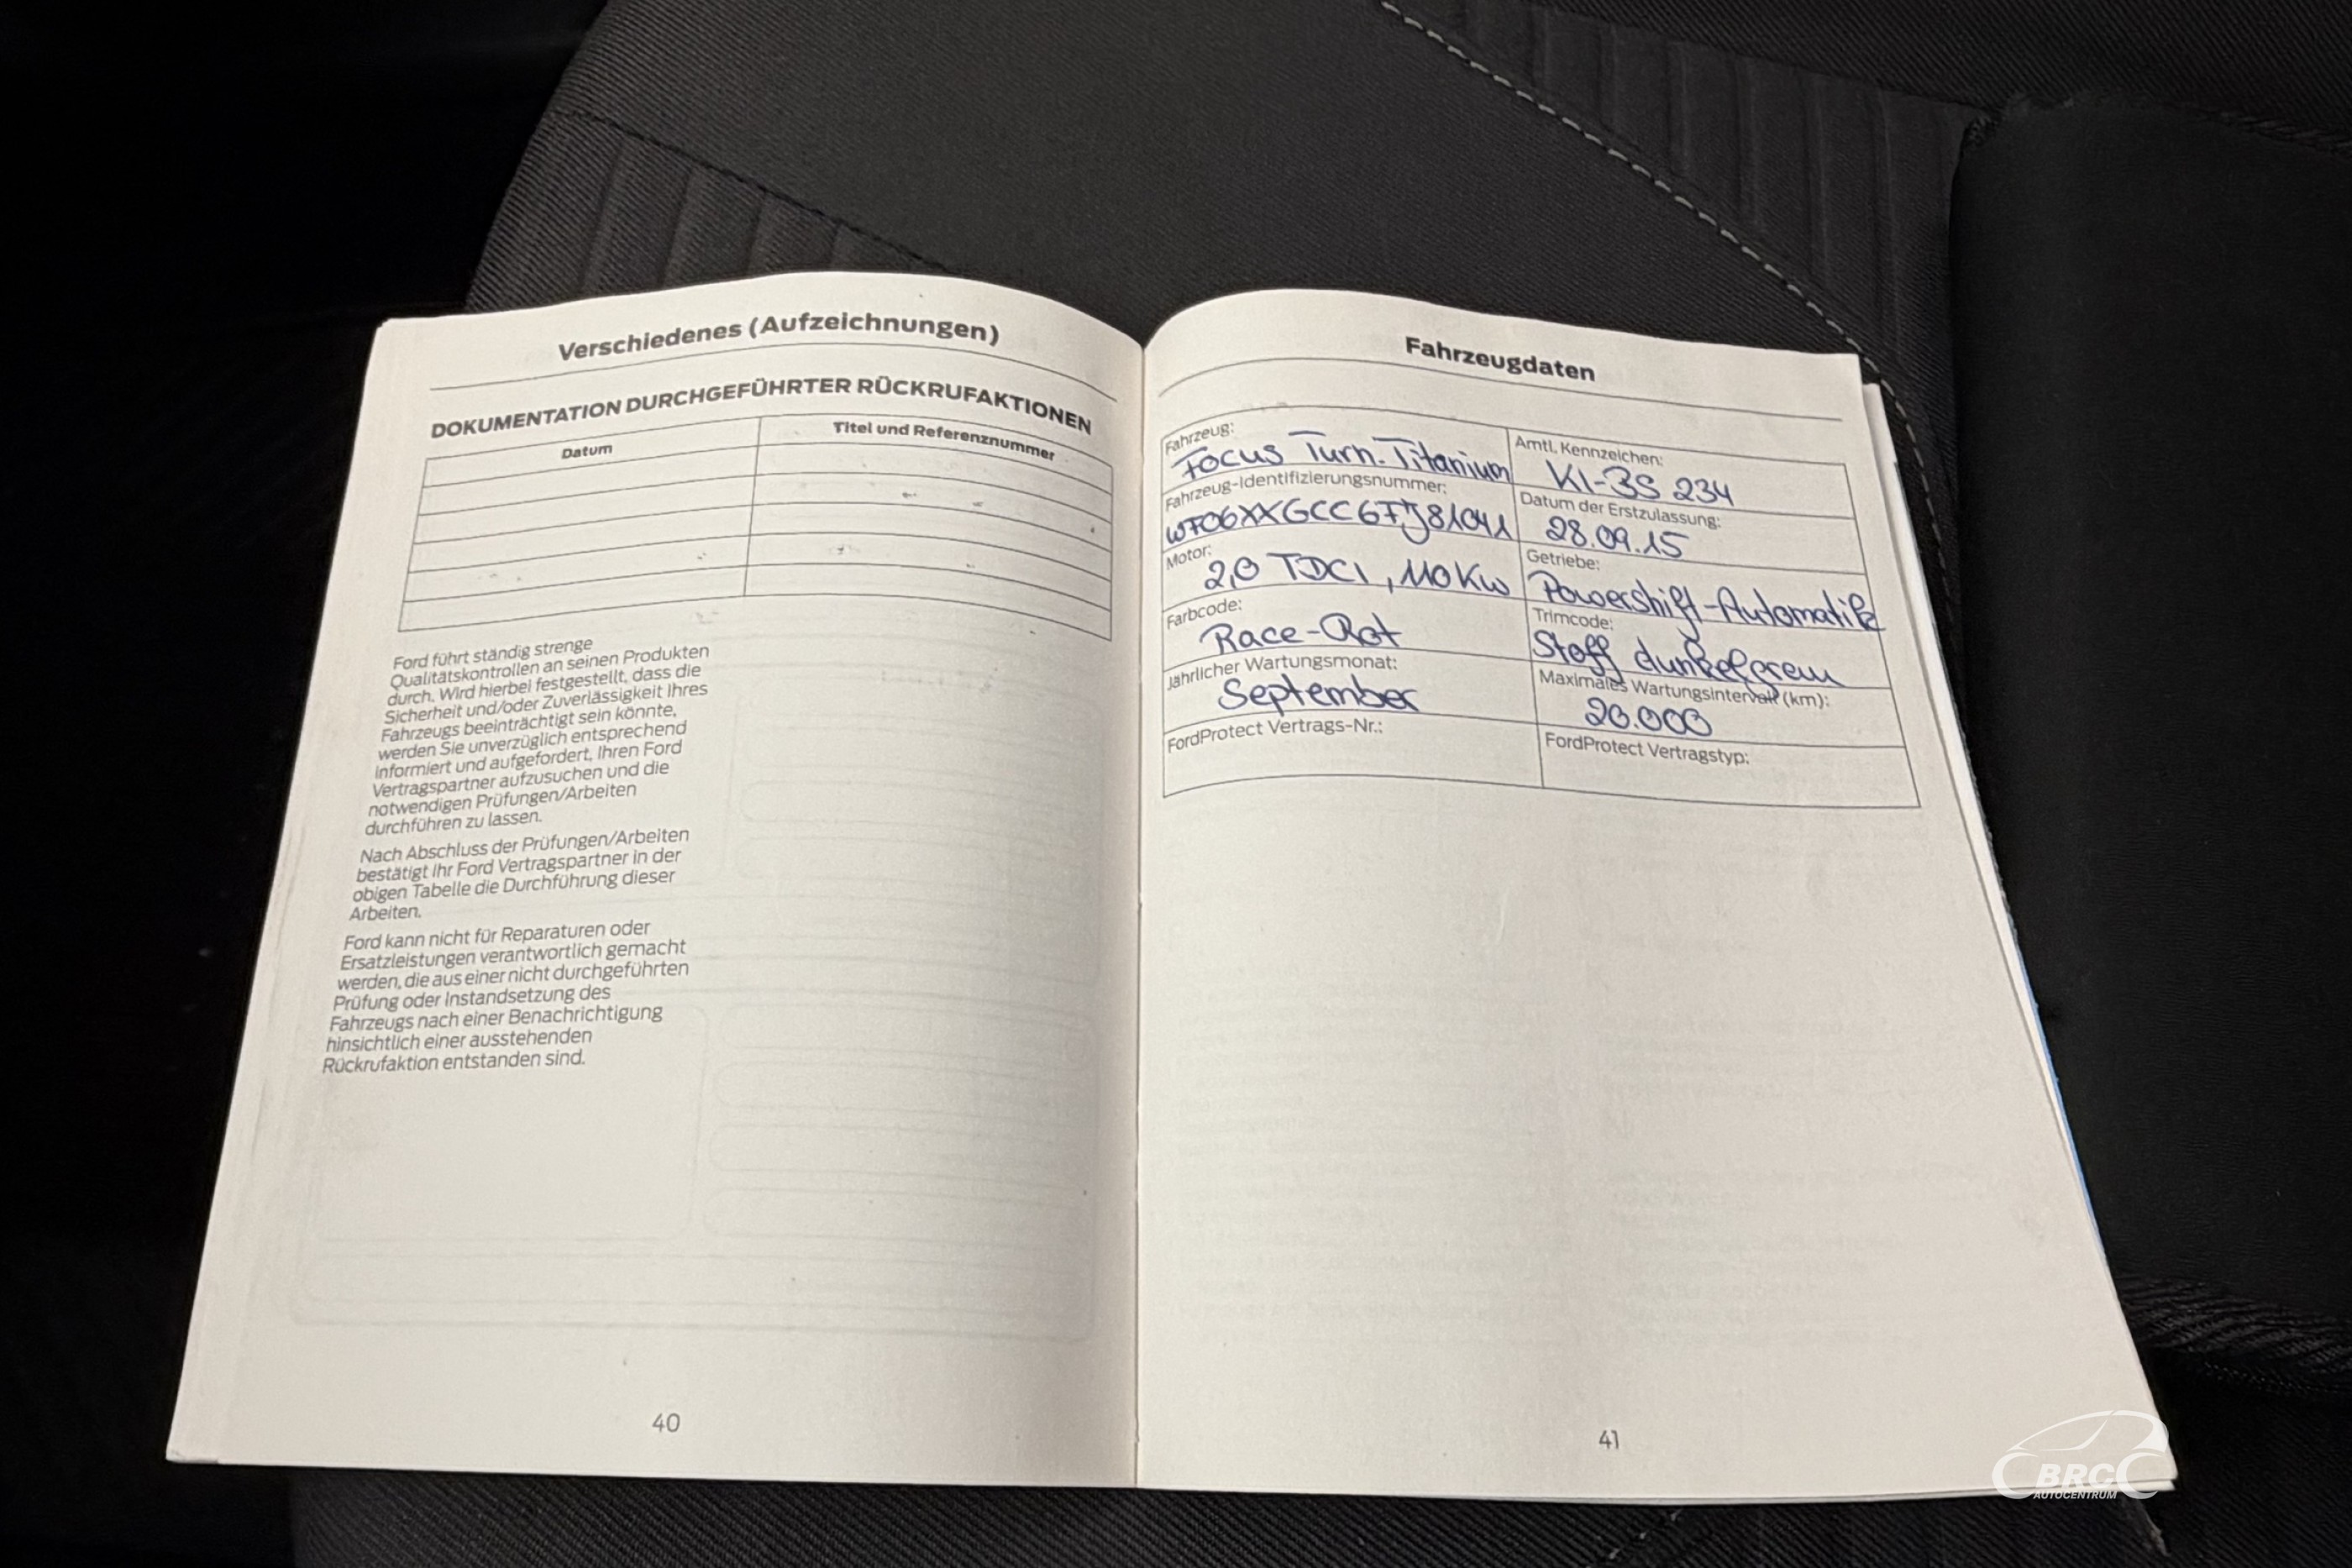 Verschiedenes (Aufzeichnungen)
DOKUMENTATION DURCHGEFÜHRTER RÜCKRUFAKTIONEN
Datum
Titel und Referenznummer
Ford führt ständig strenge
Qualitätskontrollen an seinen Produkten
durch. Wird hierbei festgestellt, dass die
Sicherheit und/oder Zuverlässigkeit Ihres
Fahrzeugs beeinträchtigt sein könnte,
werden Sie unverzüglich entsprechend
informiert und aufgefordert, Ihren Ford
Vertragspartner aufzusuchen und die
notwendigen Prüfungen/Arbeiten
durchführen zu lassen.
Nach Abschluss der Prüfungen/Arbeiten
bestätigt Ihr Ford Vertragspartner in der
obigen Tabelle die Durchführung dieser
Arbeiten.
Ford kann nicht für Reparaturen oder
Ersatzleistungen verantwortlich gemacht
werden, die aus einer nicht durchgeführten
Prüfung oder Instandsetzung des
Fahrzeugs nach einer Benachrichtigung
hinsichtlich einer ausstehenden
Rückrufaktion entstanden sind.
40
Fahrzeugdaten
Fahrzeug:
Focus Turn. Titanium
Amtl. Kennzeichen:
KI-BS 234
Fahrzeug-Identifizierungsnummer:
WF06XXGCC6FJ81041
Datum der Erstzulassung:
28.09.15
Motor:
2,0 TDCI, 110 KW
Getriebe:
Powershift-Automatik
Farbcode:
Race-Rot
Trimcode:
Stoff
Jährlicher Wartungsmonat:
September
Maximales Wartungsintervall (km):
20.000
FordProtect Vertrags-Nr.:
FordProtect Vertragstyp:
41
BRC
AUTOCENTRUM